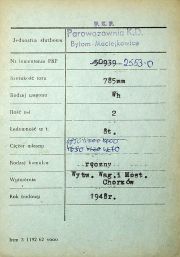 P. K. P.
Jednostka służbowa
Parowozownia K.D.
Bytom-Maciejkowice
Nr inwentarza PKP
50939 2553-0
Szerokość toru
785mm
Rodzaj wagonu
Wh
Ilość osi
2
Ładowność w t.
8t.
Ciężar własny
Rodzaj hamulca
ręczny
Wytwórnia
Wytw. Wag. i Most.
Chorzów
Rok budowy
1948r.